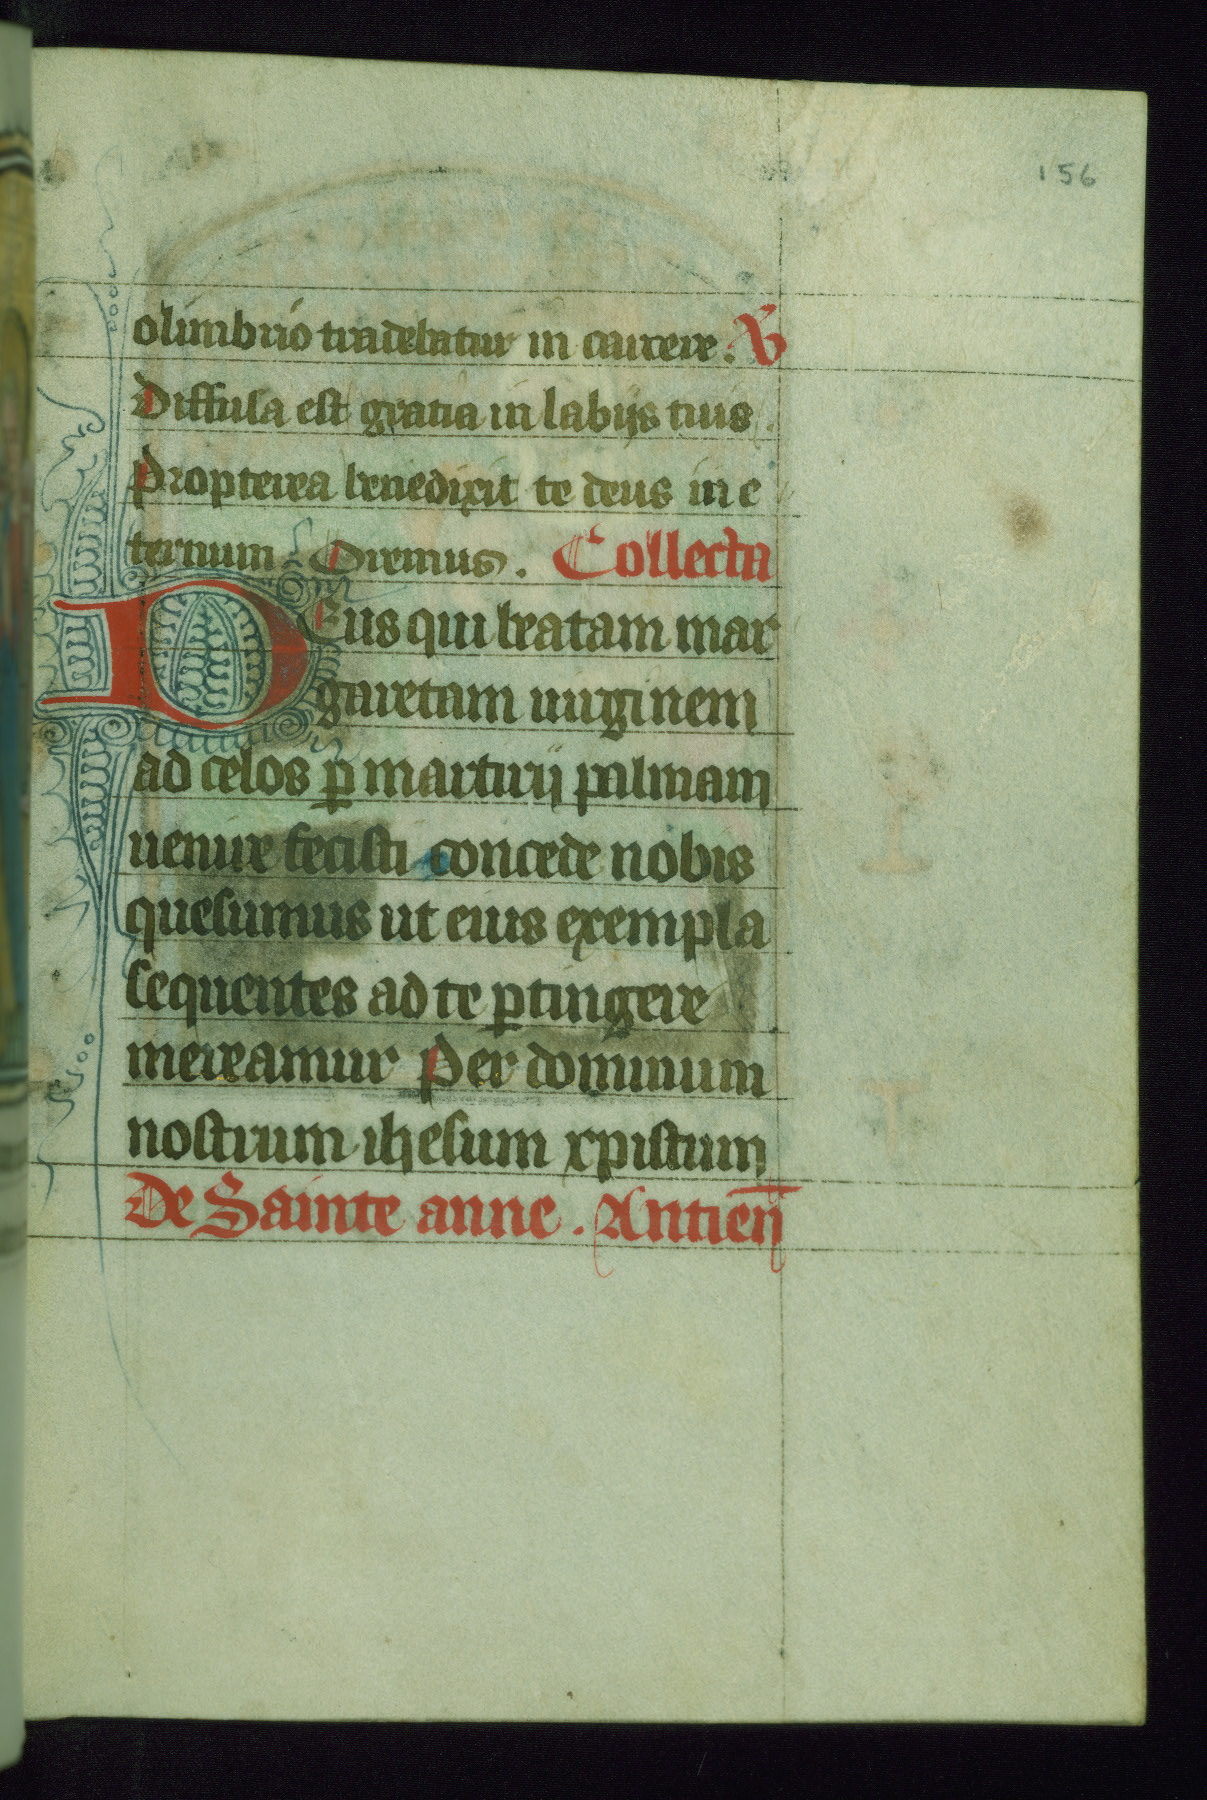 156
olimbrio tradebatur in carcere. ℣
Diffusa est gratia in labijs tuis.
Propterea benedixit te deus in e
ternum Oremus. Collecta
Deus qui beatam mar
garetam uirginem
ad celos ꝑ martirij palmam
uenire fecisti concede nobis
quesumus ut eius exempla
sequentes ad te ꝑtingere
mereamur Per dominum
nostrum ihesum xpistum
De Sainte anne. Antieñ